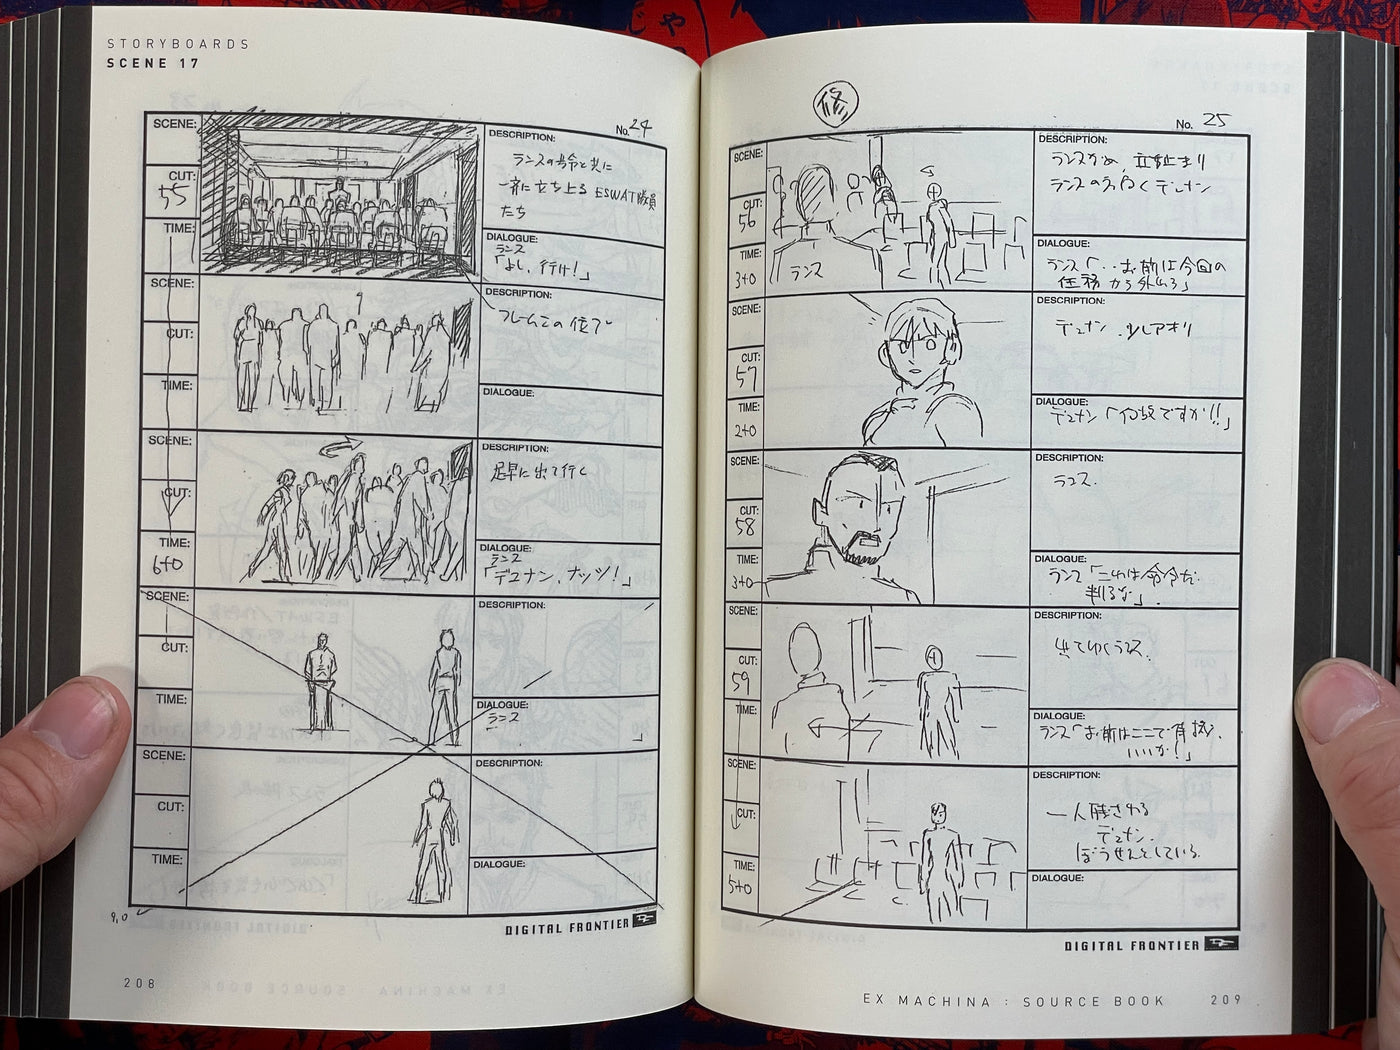 STORYBOARDS
SCENE 17
No. 24
SCENE:
CUT:
55
TIME:
DESCRIPTION:
ランスの号令と共に
一斉に立ち上る ESWAT隊員
たち
DIALOGUE:
ランス
「よし、行け!」
SCENE:
CUT:
TIME:
DESCRIPTION:
フレームこの位で
DIALOGUE:
SCENE:
CUT:
TIME:
6+0
DESCRIPTION:
足早に出て行く
DIALOGUE:
ランス
「デュナン、ナッツ!」
SCENE:
CUT:
TIME:
DESCRIPTION:
DIALOGUE:
ランス
」
SCENE:
CUT:
TIME:
DESCRIPTION:
DIALOGUE:
9,0
DIGITAL FRONTIER
208
修
No. 25
SCENE:
CUT:
56
TIME:
3+0
ランス
DESCRIPTION:
立ち止まり
デュナン
DIALOGUE:
ランス「‥お前は今回の
任務から外れろ」
SCENE:
CUT:
57
TIME:
2+0
DESCRIPTION:
デュナン
DIALOGUE:
デュナン「何故ですか!!」
SCENE:
CUT:
58
TIME:
3+0
DESCRIPTION:
ランス.
DIALOGUE:
ランス「これは命令だ.
判るな」.
SCENE:
CUT:
59
TIME:
DESCRIPTION:
出てゆくランス.
DIALOGUE:
ランス「お前はここで待機.
いいか!」
SCENE:
CUT:
TIME:
5+0
DESCRIPTION:
一人残される
デュナン.
ぼうぜんとしている.
DIALOGUE:
DIGITAL FRONTIER
EX MACHINA : SOURCE BOOK 209